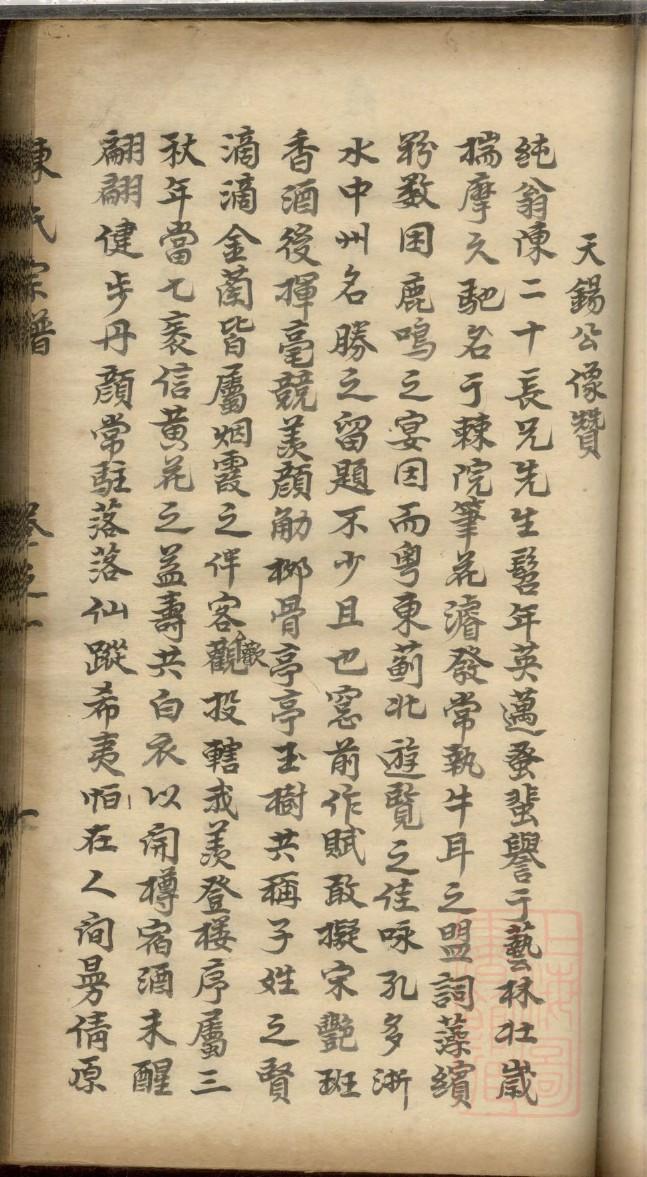 天錫公像贊
純翁陳二十長兄先生髫年英邁蚤蜚譽于藝林壯歲
揣摩久馳名于棘院筆花濬發常執牛耳之盟詞藻繽
粉數困鹿鳴之宴因而粵東薊北遊覽之佳咏孔多浙
水中州名勝之留題不少且也窓前作賦敢擬宋艷班
香酒後揮毫競羨顏觔柳骨亭亭玉樹共稱子姓之賢
滴滴金蘭皆屬烟霞之伴客觀歡投轄我羨登樓序屬三
秋年當七袠信黃花之益壽共白衣以開樽宿酒未醒
翩翩健步丹顏常駐落落仙蹤希夷怕在人間曼倩原
陳氏宗譜 卷之一 一